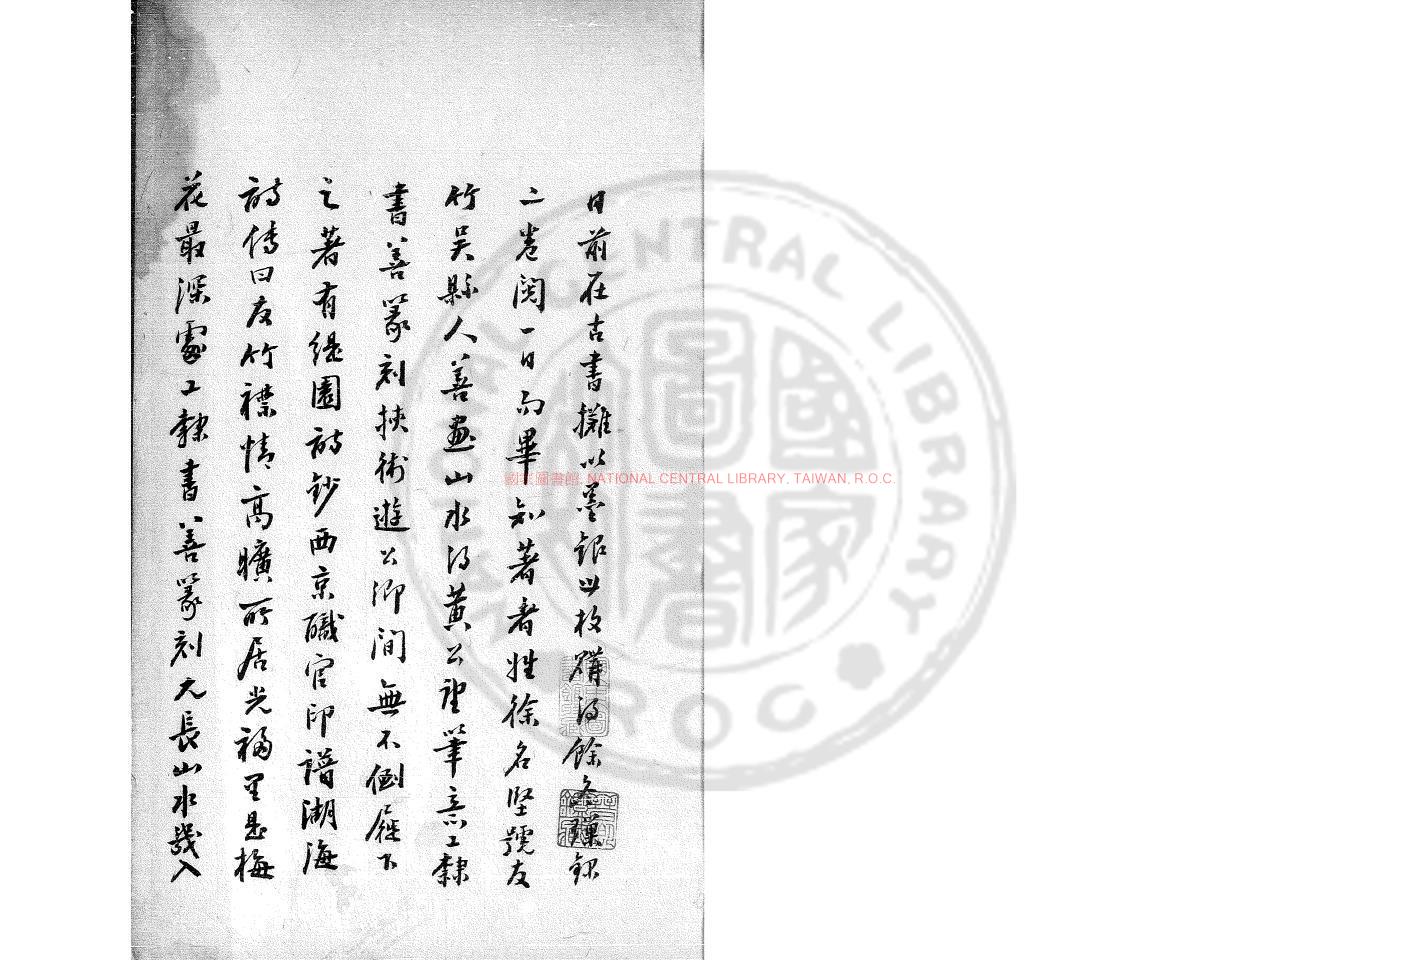 日前在古書攤以墨銀廿枚購得餘冬璅録
二卷閱一日而畢知著者姓徐名堅號友
竹吳縣人善畫山水得黃公望筆意工隸
書善篆刻挾術遊公卿間無不倒屣下
之著有緹園詩鈔西京職官印譜湖海
詩傳曰友竹襟情高曠所居光福里是梅
花最深處工隸書善篆刻尤長山水幾入
國家圖書館, NATIONAL CENTRAL LIBRARY, TAIWAN, R.O.C.
NATIONAL CENTRAL LIBRARY
R.O.C
國家圖書